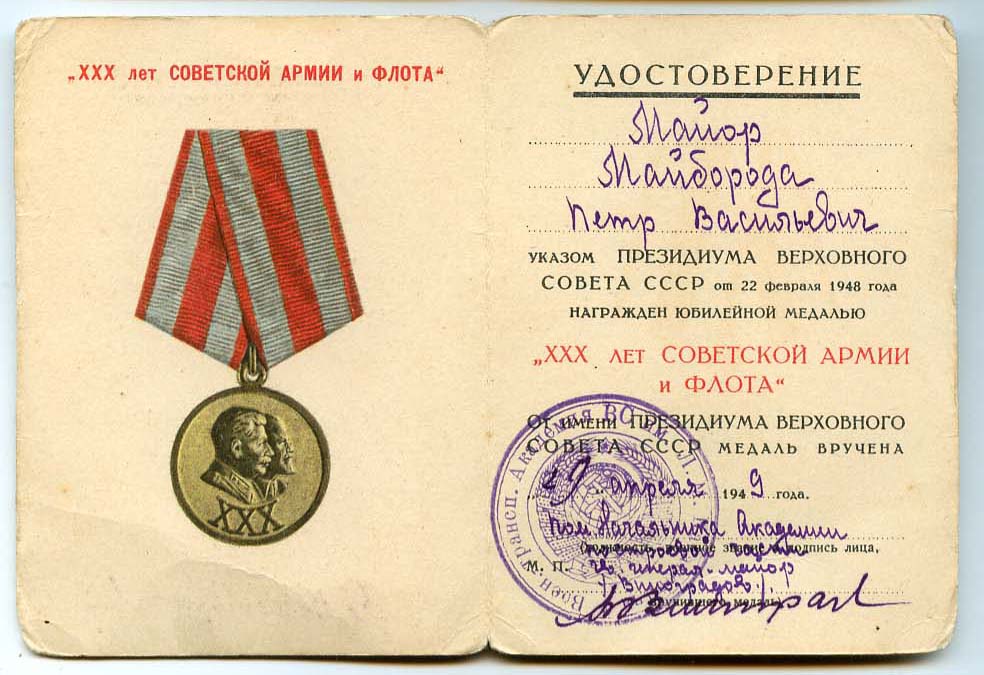 „XXX лет СОВЕТСКОЙ АРМИИ и ФЛОТА“
XXX
УДОСТОВЕРЕНИЕ
Майор
Майборода
Петр Васильевич
УКАЗОМ ПРЕЗИДИУМА ВЕРХОВНОГО
СОВЕТА СССР от 22 февраля 1948 года
НАГРАЖДЕН ЮБИЛЕЙНОЙ МЕДАЛЬЮ
„XXX ЛЕТ СОВЕТСКОЙ АРМИИ
и ФЛОТА“
ОТ ИМЕНИ ПРЕЗИДИУМА ВЕРХОВНОГО
СОВЕТА СССР МЕДАЛЬ ВРУЧЕНА
апреля 1949 года.
Пом. Начальника Академии
(должность, воинское звание и подпись лица,
по строевой части
М. П. гв. генерал-майор
/Виноградов/
вручившего медаль)
Воен. Трансп. Академия ВС им. Л.